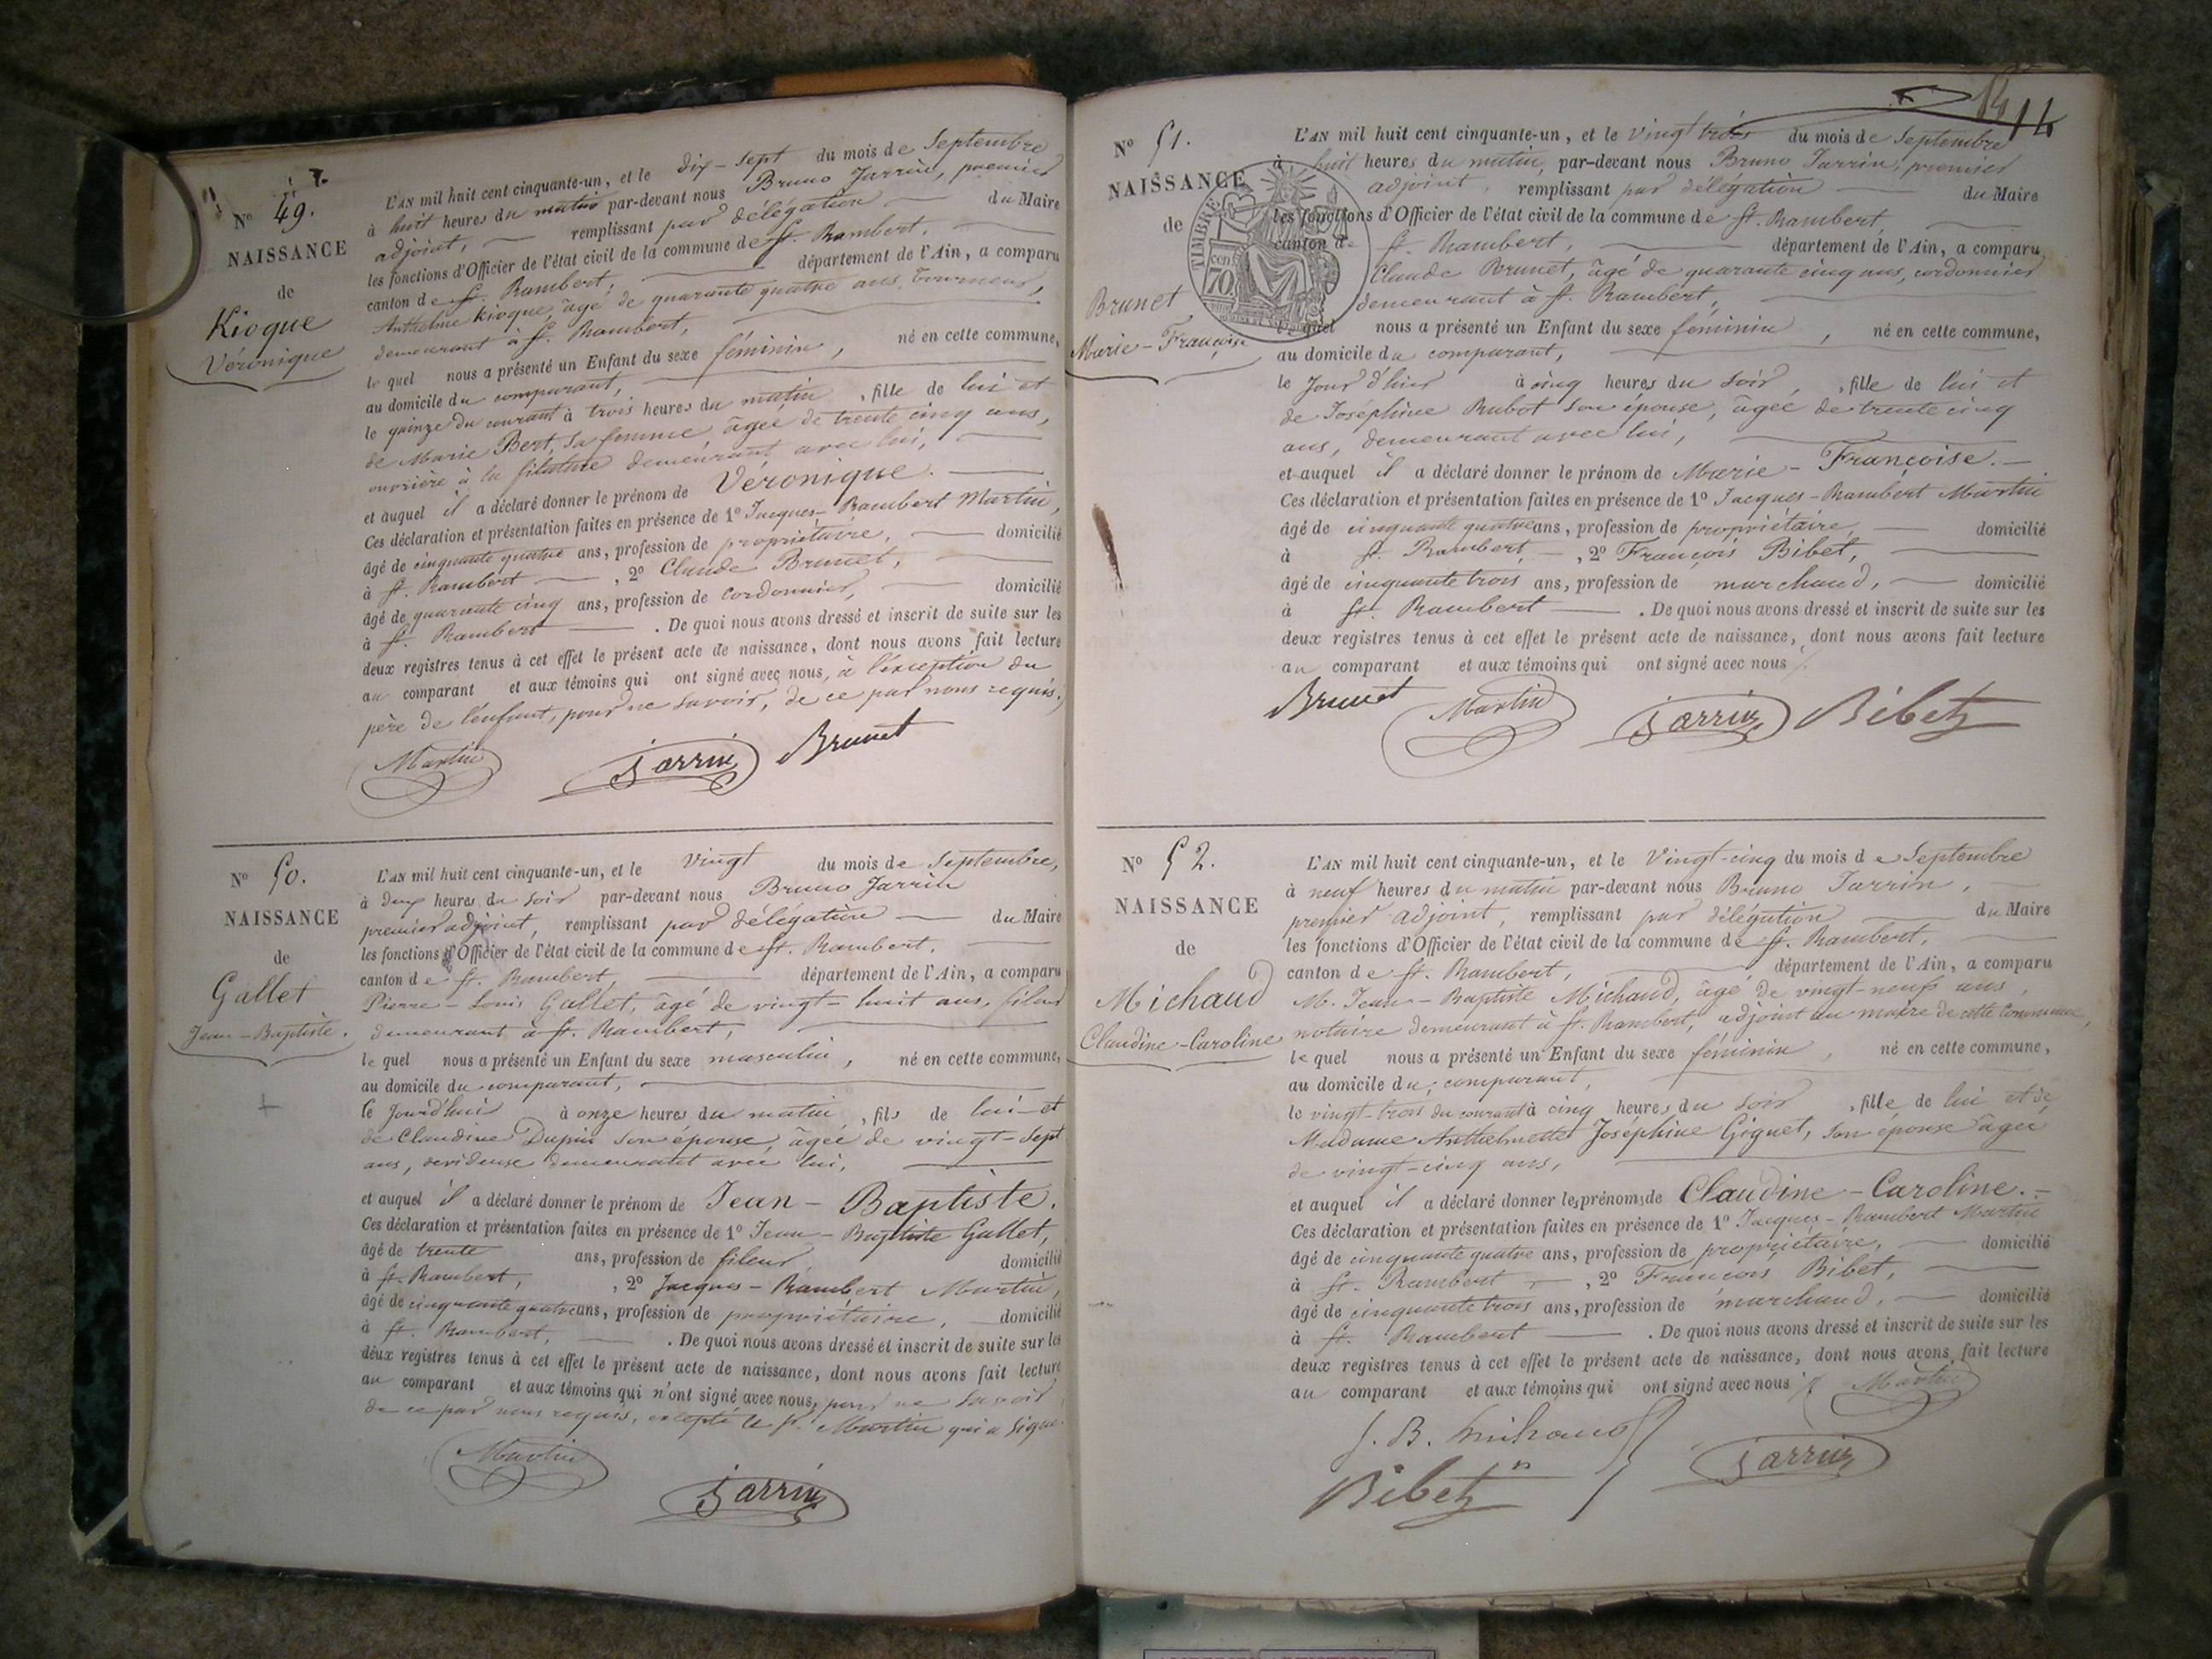 N° 49.
NAISSANCE
de
Kioque
Véronique
L'AN mil huit cent cinquante-un, et le dix-sept du mois de Septembre
à huit heures du matin par-devant nous Bruno Jarrin, premier
adjoint, remplissant par délégation du Maire
les fonctions d'Officier de l'état civil de la commune de St. Rambert,
canton de St. Rambert, département de l'Ain, a comparu
Anthelme Kioque, âgé de quarante quatre ans, tourneur,
demeurant à St. Rambert,
le quel nous a présenté un Enfant du sexe féminin, né en cette commune,
au domicile du comparant,
le quinze du courant à trois heures du matin, fille de lui et
de Marie Bert, sa femme, âgée de trente cinq ans,
ouvrière à la filature demeurant avec lui,
et auquel il a déclaré donner le prénom de Véronique.
Ces déclaration et présentation faites en présence de 1° Jacques-Rambert Martin,
âgé de cinquante quatre ans, profession de propriétaire, domicilié
à St. Rambert, 2° Claude Brunet,
âgé de quarante cinq ans, profession de cordonnier, domicilié
à St. Rambert. De quoi nous avons dressé et inscrit de suite sur les
deux registres tenus à cet effet le présent acte de naissance, dont nous avons fait lecture
au comparant et aux témoins qui ont signé avec nous, à l'exception du
père de l'enfant, pour ne savoir, de ce par nous requis.
Martin Jarrin Brunet
N° 50.
NAISSANCE
de
Gallet
Jean-Baptiste.
L'AN mil huit cent cinquante-un, et le vingt du mois de Septembre,
à deux heures du soir par-devant nous Bruno Jarrin
premier adjoint, remplissant par délégation du Maire
les fonctions d'Officier de l'état civil de la commune de St. Rambert,
canton de St. Rambert, département de l'Ain, a comparu
Pierre-Louis Gallet, âgé de vingt-huit ans, fileur
demeurant à St. Rambert,
le quel nous a présenté un Enfant du sexe masculin, né en cette commune,
au domicile du comparant,
le jourd'hui à onze heures du matin, fils de lui et
de Claudine Dupin son épouse, âgée de vingt-sept
ans, devideuse demeurant avec lui,
et auquel il a déclaré donner le prénom de Jean-Baptiste.
Ces déclaration et présentation faites en présence de 1° Jean-Baptiste Gallet,
âgé de trente ans, profession de fileur domicilié
à St. Rambert, 2° Jacques-Rambert Martin,
âgé de cinquante quatre ans, profession de propriétaire, domicilié
à St. Rambert. De quoi nous avons dressé et inscrit de suite sur les
deux registres tenus à cet effet le présent acte de naissance, dont nous avons fait lecture
au comparant et aux témoins qui n'ont signé avec nous, pour ne savoir
de ce par nous requis, excepté le Sr. Martin qui a signé
Martin Jarrin
14
N° 51.
NAISSANCE
de
Brunet
Marie-Françoise
TIMBRE
70 cen
L'AN mil huit cent cinquante-un, et le vingt trois du mois de Septembre
à huit heures du matin, par-devant nous Bruno Jarrin, premier
adjoint, remplissant par délégation du Maire
les fonctions d'Officier de l'état civil de la commune de St. Rambert,
canton de St. Rambert, département de l'Ain, a comparu
Claude Brunet, âgé de quarante cinq ans, cordonnier
demeurant à St. Rambert,
lequel nous a présenté un Enfant du sexe féminin, né en cette commune,
au domicile du comparant,
le jour d'hier à cinq heures du soir, fille de lui et
de Joséphine Rubot son épouse, âgée de trente cinq
ans, demeurant avec lui,
et auquel il a déclaré donner le prénom de Marie-Françoise.
Ces déclaration et présentation faites en présence de 1° Jacques-Rambert Martin
âgé de cinquante quatre ans, profession de propriétaire domicilié
à St. Rambert, 2° François Bibet,
âgé de cinquante trois ans, profession de marchand, domicilié
à St. Rambert. De quoi nous avons dressé et inscrit de suite sur les
deux registres tenus à cet effet le présent acte de naissance, dont nous avons fait lecture
au comparant et aux témoins qui ont signé avec nous
Brunet Martin Jarrin Bibet
N° 52.
NAISSANCE
de
Michaud
Claudine-Caroline
L'AN mil huit cent cinquante-un, et le vingt-cinq du mois de Septembre
à neuf heures du matin par-devant nous Bruno Jarrin,
premier adjoint, remplissant par délégation du Maire
les fonctions d'Officier de l'état civil de la commune de St. Rambert,
canton de St. Rambert, département de l'Ain, a comparu
M. Jean-Baptiste Michaud, âgé de vingt-neuf ans,
notaire demeurant à St. Rambert, adjoint au maire de cette commune,
le quel nous a présenté un Enfant du sexe féminin, né en cette commune,
au domicile du comparant,
le vingt-trois du courant à cinq heures du soir, fille de lui et de
Madame Anthelmette Joséphine Giguet, son épouse âgée
de vingt-cinq ans,
et auquel il a déclaré donner les prénoms de Claudine-Caroline.
Ces déclaration et présentation faites en présence de 1° Jacques-Rambert Martin
âgé de cinquante quatre ans, profession de propriétaire, domicilié
à St. Rambert, 2° François Bibet,
âgé de cinquante trois ans, profession de marchand, domicilié
à St. Rambert. De quoi nous avons dressé et inscrit de suite sur les
deux registres tenus à cet effet le présent acte de naissance, dont nous avons fait lecture
au comparant et aux témoins qui ont signé avec nous Martin
J. B. Michaud Jarrin
Bibet